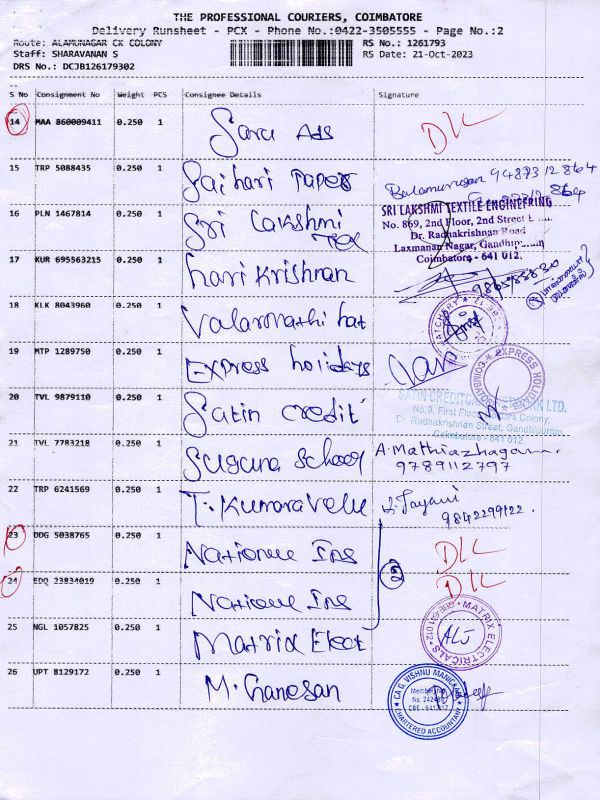 THE PROFESSIONAL COURIERS, COIMBATORE
Delivery Runsheet - PCX - Phone No.:0422-3505555 - Page No.:2
Route: ALAMUNAGAR CK COLONY
RS No.: 1261793
Staff: SHARAVANAN S
RS Date: 21-Oct-2023
DRS No.: DCJB126179302
S No Consignment No Weight PCS Consignee Details Signature
14 MAA 860009411 0.250 1 Sara Ads D/L
15 TRP 5088435 0.250 1 Saihari Papers Balamurugan 9487312864
16 PLN 1467814 0.250 1 Sri Lakshmi Tex
SRI LAKSHMI TEXTILE ENGINEERING
No. 869, 2nd Floor, 2nd Street
Dr. Radhakrishnan Road
Laxmanan Nagar, Gandhipuram
Coimbatore - 641 012.
17 KUR 695563215 0.250 1 Hari Krishnan
18 KLK 8043960 0.250 1 Valarmathi hat
19 MTP 1289750 0.250 1 Express holidays
EXPRESS HOLIDAYS
20 TVL 9879110 0.250 1 Satin credit
SATIN CREDITCARE NETWORK LTD.
No.9, First Floor, Colony,
Dr. Radhakrishnan Street, Gandhipuram,
Coimbatore - 641 012.
21 TVL 7783218 0.250 1 Suguna School A. Mathiazhagan
9789112797
22 TRP 6241569 0.250 1 T. Kumaravelu J. Jayani
9842299122.
23 DDG 5038765 0.250 1 Nationue Ins D/L
24 EDQ 23834019 0.250 1 Nationue Ins D/L
2
25 NGL 1057825 0.250 1 Matrix Elect
MATRIX ELECTRICALS
26 UPT 8129172 0.250 1 M. Ganesan
CA G. VISHNU MANICKAM
CHARTERED ACCOUNTANT